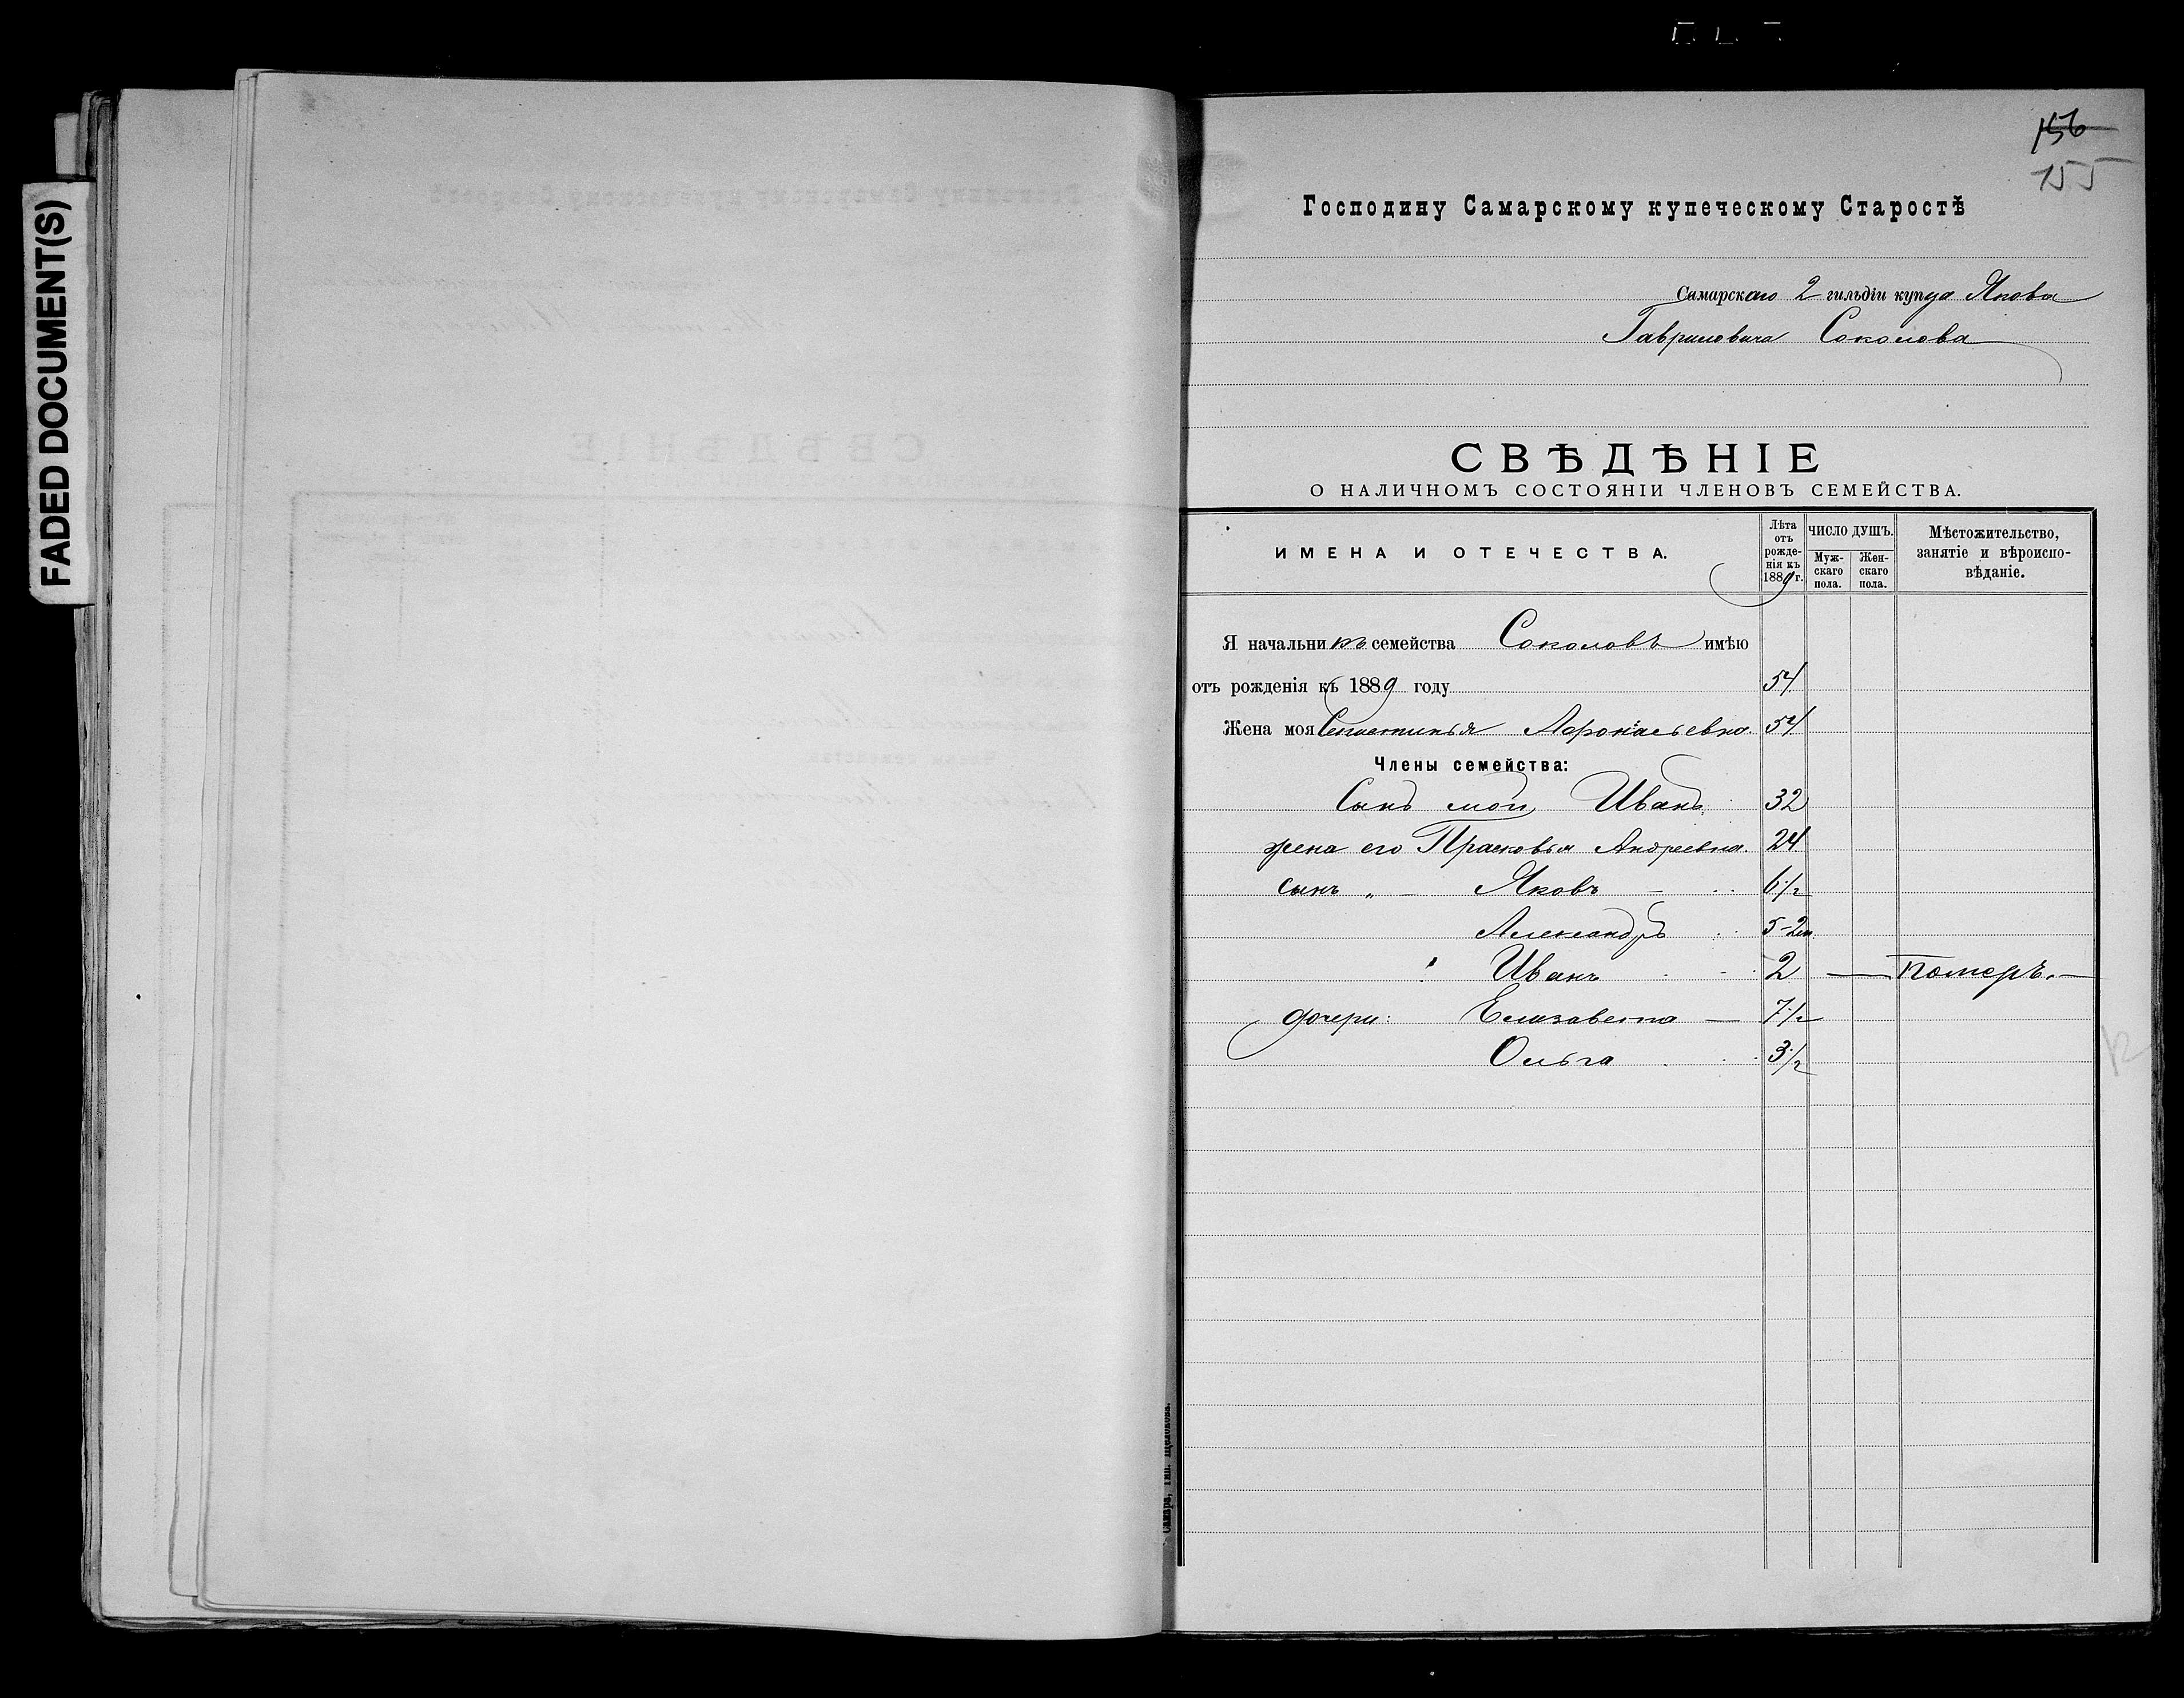 FADED DOCUMENT(S)
156
155
Господину Самарскому купеческому Старостѣ
Самарскаго 2 гильдіи купца Якова
Гавриловича Соколова
СВѢДѢНІЕ
О НАЛИЧНОМЪ СОСТОЯНІИ ЧЛЕНОВЪ СЕМЕЙСТВА.
ИМЕНА И ОТЕЧЕСТВА.
Лѣта отъ рожде-нія къ 1889 г.
ЧИСЛО ДУШЪ.
Муж-скаго пола.
Жен-скаго пола.
Мѣстожительство, занятіе и вѣроиспо-вѣданіе.
Я начальникъ семейства Соколовъ имѣю
отъ рожденія къ 1889 году 54
Жена моя 54
Члены семейства:
Сынъ мой Иванъ 32
жена его Прасковья Андреевна. 24
сынъ „ — Яковъ — 6 1/2
Александръ 5-2м
Иванъ 2 — Померъ. —
дочери: Елизавета — 7 1/2
Ольга 3 1/2
Самара, тип. Щелокова.